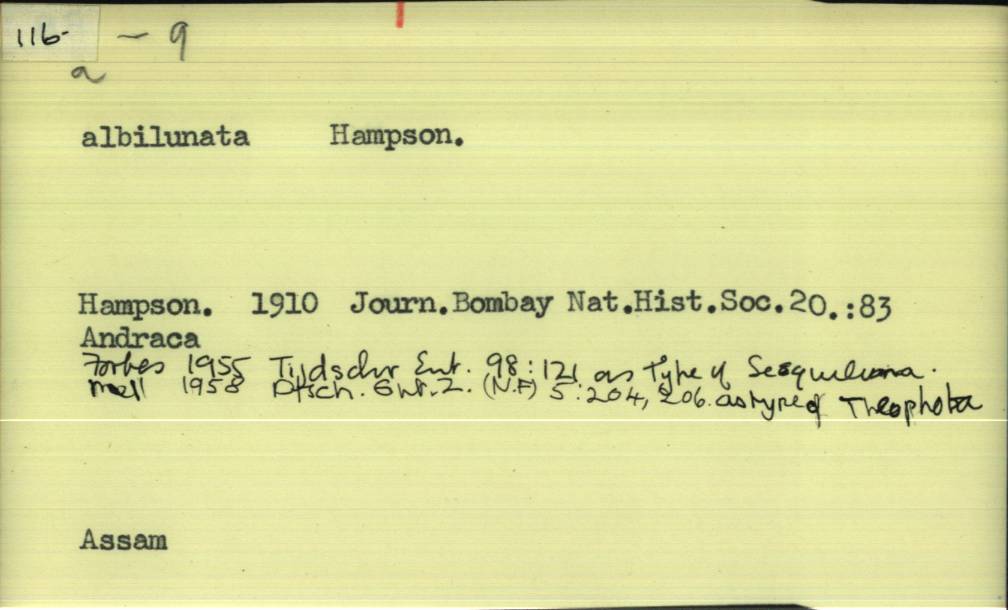 116- — 9
a
albilunata Hampson.
Hampson. 1910 Journ.Bombay Nat.Hist.Soc.20.:83
Andraca
Forbes 1955 Tijdschr Ent. 98:121 as type of Sesquiluna.
Mell 1958 Dtsch. Ent. Z. (N.F) 5:204, 206. as type of Theophoba
Assam